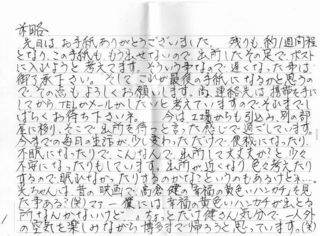 前略
先日はお手紙ありがとうございました。残りも約1週間程
となり、この手紙も、もう出せないので、出所したその足でポスト
に入れようと考えてます。そういう事なので、遅くなった事は
御了承下さい。そして、これが最後の手紙になるかと思うの
で、その点もよろしくお願いします。尚、連絡先は携帯を手に
してからTELかメールかしたいと考えていますのでそれまでし
ばらくお待ち下さいネ。今は工場からも引込み、別の部
屋に移り、そこで出所を待つと言った感じで過ごしています。
今までの毎日の生活が、少し変わっただけで、便秘になったり、
不眠になったりで、こんなんで、出所して大丈夫か？と少々
不安になったりもしています。出所が近くなり、あれこれ考えたり
するので眠れなかったりするのかなというのもあるけどネ…。
兄ちゃんは、昔の映画で、高倉健の「幸福の黄色いハンカチ」を見
た事ある？(笑)マァー僕には、幸福の黄色いハンカチが見える
所なんかないけど…、ちょっとだけ健さん気分で、一人外
の空気を楽しみながら博多まで帰ろうと思っています。(笑)